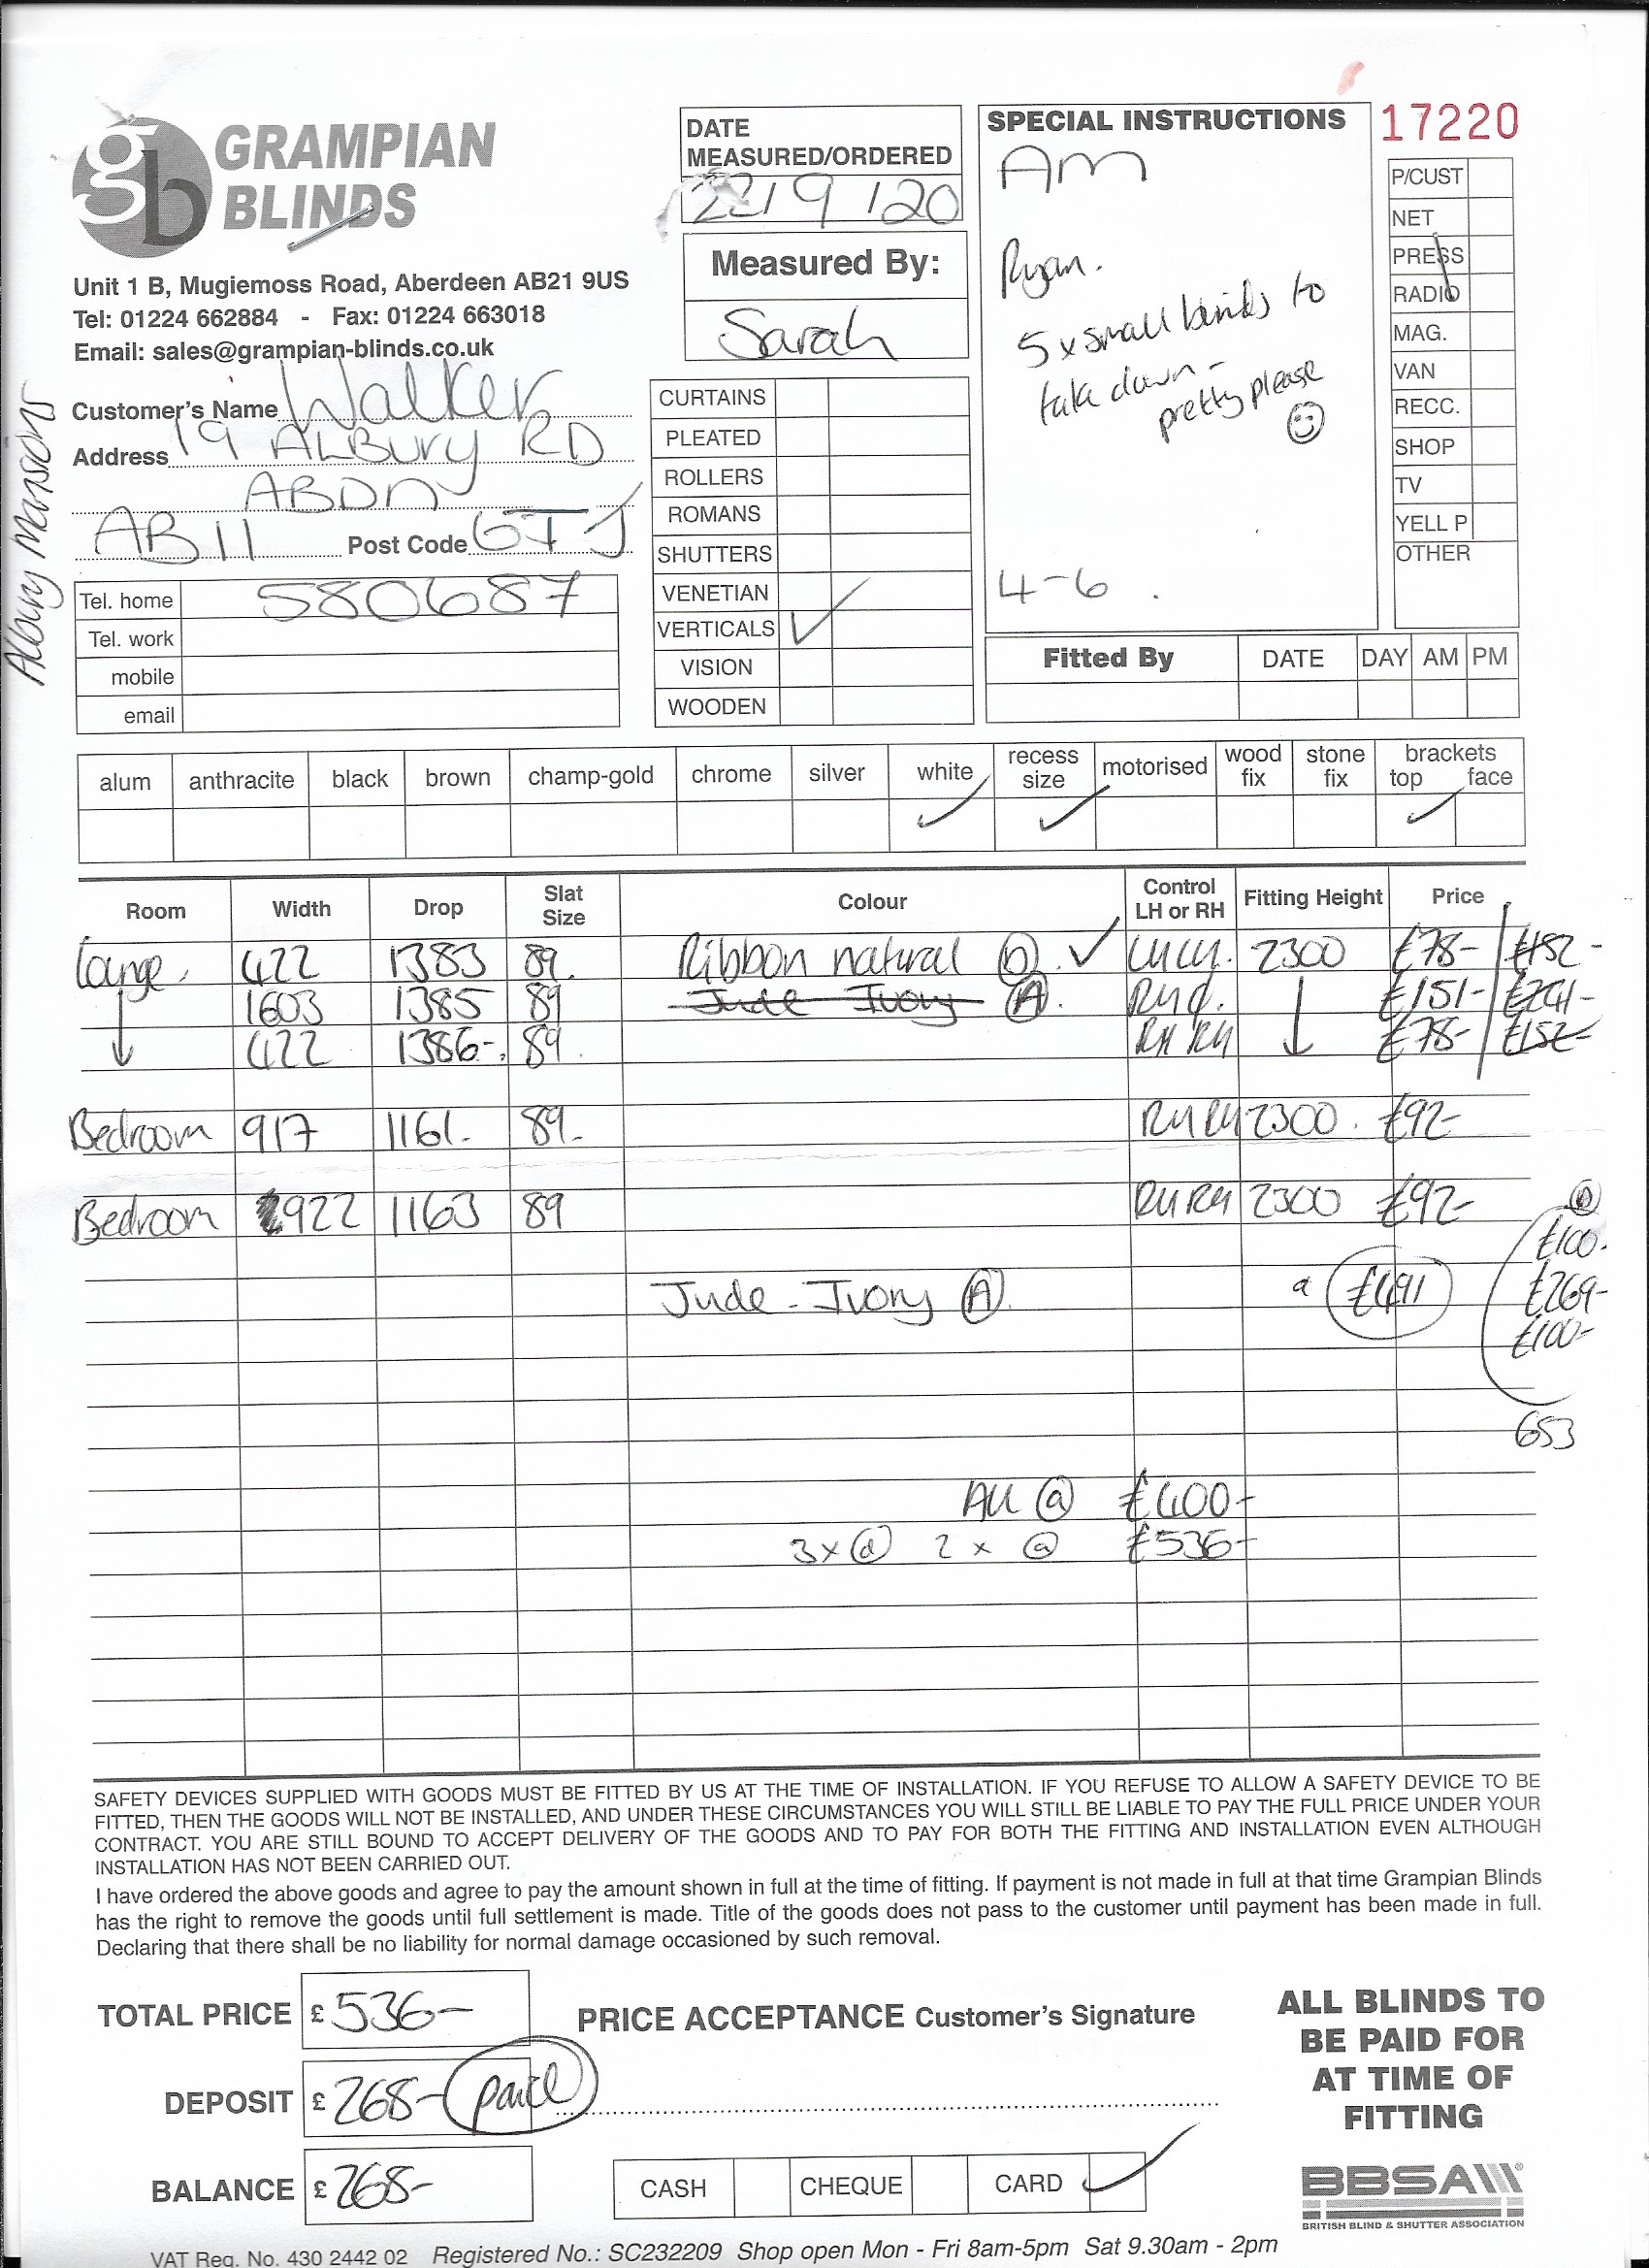 gb GRAMPIAN
BLINDS
Unit 1 B, Mugiemoss Road, Aberdeen AB21 9US
Tel: 01224 662884 - Fax: 01224 663018
Email: sales@grampian-blinds.co.uk
DATE
MEASURED/ORDERED
22/9/20
Measured By:
Sarah
SPECIAL INSTRUCTIONS
AM
Ryan.
5 x small blinds to
take down -
pretty please
4-6.
17220
P/CUST
NET
PRESS
RADIO
MAG.
VAN
RECC.
SHOP
TV
YELL P
OTHER
Albury Mansions
Customer's Name Walker
Address 19 ALBURY RD
ABDN
AB11 Post Code 6TJ
Tel. home 580687
Tel. work
mobile
email
CURTAINS
PLEATED
ROLLERS
ROMANS
SHUTTERS
VENETIAN
VERTICALS ✓
VISION
WOODEN
Fitted By DATE DAY AM PM
alum anthracite black brown champ-gold chrome silver white recess size motorised wood fix stone fix brackets top face
✓ ✓ ✓
Room Width Drop Slat Size Colour Control LH or RH Fitting Height Price
Lounge. 422 1383 89. Ribbon natural (D). ✓ LHLH. 2300 £78- £152-
1603 1385 89 Jude Ivory (A). £151- £241-
422 1386-. 89. RH RH £78- £152-
Bedroom 917 1161. 89. RH RH 2300. £92-
Bedroom 922 1163 89 RH RH 2300 £92-
Jude - Ivory (A). a £491
(D)
£100.
£269-
£100-
653
All @ £400-
3x(d) 2 x (a) £536-
SAFETY DEVICES SUPPLIED WITH GOODS MUST BE FITTED BY US AT THE TIME OF INSTALLATION. IF YOU REFUSE TO ALLOW A SAFETY DEVICE TO BE
FITTED, THEN THE GOODS WILL NOT BE INSTALLED, AND UNDER THESE CIRCUMSTANCES YOU WILL STILL BE LIABLE TO PAY THE FULL PRICE UNDER YOUR
CONTRACT. YOU ARE STILL BOUND TO ACCEPT DELIVERY OF THE GOODS AND TO PAY FOR BOTH THE FITTING AND INSTALLATION EVEN ALTHOUGH
INSTALLATION HAS NOT BEEN CARRIED OUT.
I have ordered the above goods and agree to pay the amount shown in full at the time of fitting. If payment is not made in full at that time Grampian Blinds
has the right to remove the goods until full settlement is made. Title of the goods does not pass to the customer until payment has been made in full.
Declaring that there shall be no liability for normal damage occasioned by such removal.
TOTAL PRICE £ 536-
PRICE ACCEPTANCE Customer's Signature
DEPOSIT £ 268- paid
BALANCE £ 268-
CASH CHEQUE CARD ✓
ALL BLINDS TO
BE PAID FOR
AT TIME OF
FITTING
BBSA
BRITISH BLIND & SHUTTER ASSOCIATION
VAT Reg. No. 430 2442 02 Registered No.: SC232209 Shop open Mon - Fri 8am-5pm Sat 9.30am - 2pm